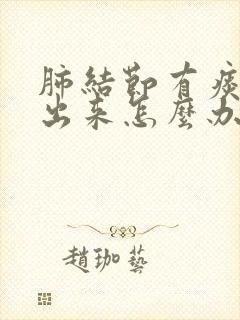 肺結節有痰
出来怎麼办
趙珈藝